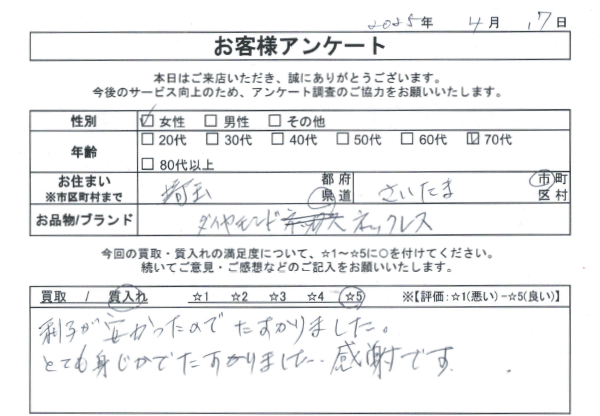 2025年 4月 17日
お客様アンケート
本日はご来店いただき、誠にありがとうございます。
今後のサービス向上のため、アンケート調査のご協力をお願いいたします。
性別 ☑女性 □男性 □その他
年齢 □20代 □30代 □40代 □50代 □60代 ☑70代
□80代以上
お住まい ※市区町村まで 埼玉 都府県道 さいたま 市町区村
お品物/ブランド ダイヤモンド ネックレス
今回の買取・質入れの満足度について、☆1～☆5に○を付けてください。
続いてご意見・ご感想などのご記入をお願いいたします。
買取 / 質入れ ☆1 ☆2 ☆3 ☆4 ☆5 ※【評価：☆1(悪い)－☆5(良い)】
利子が安かったのでたすかりました。
とても身じかでたすかりました. 感謝です.